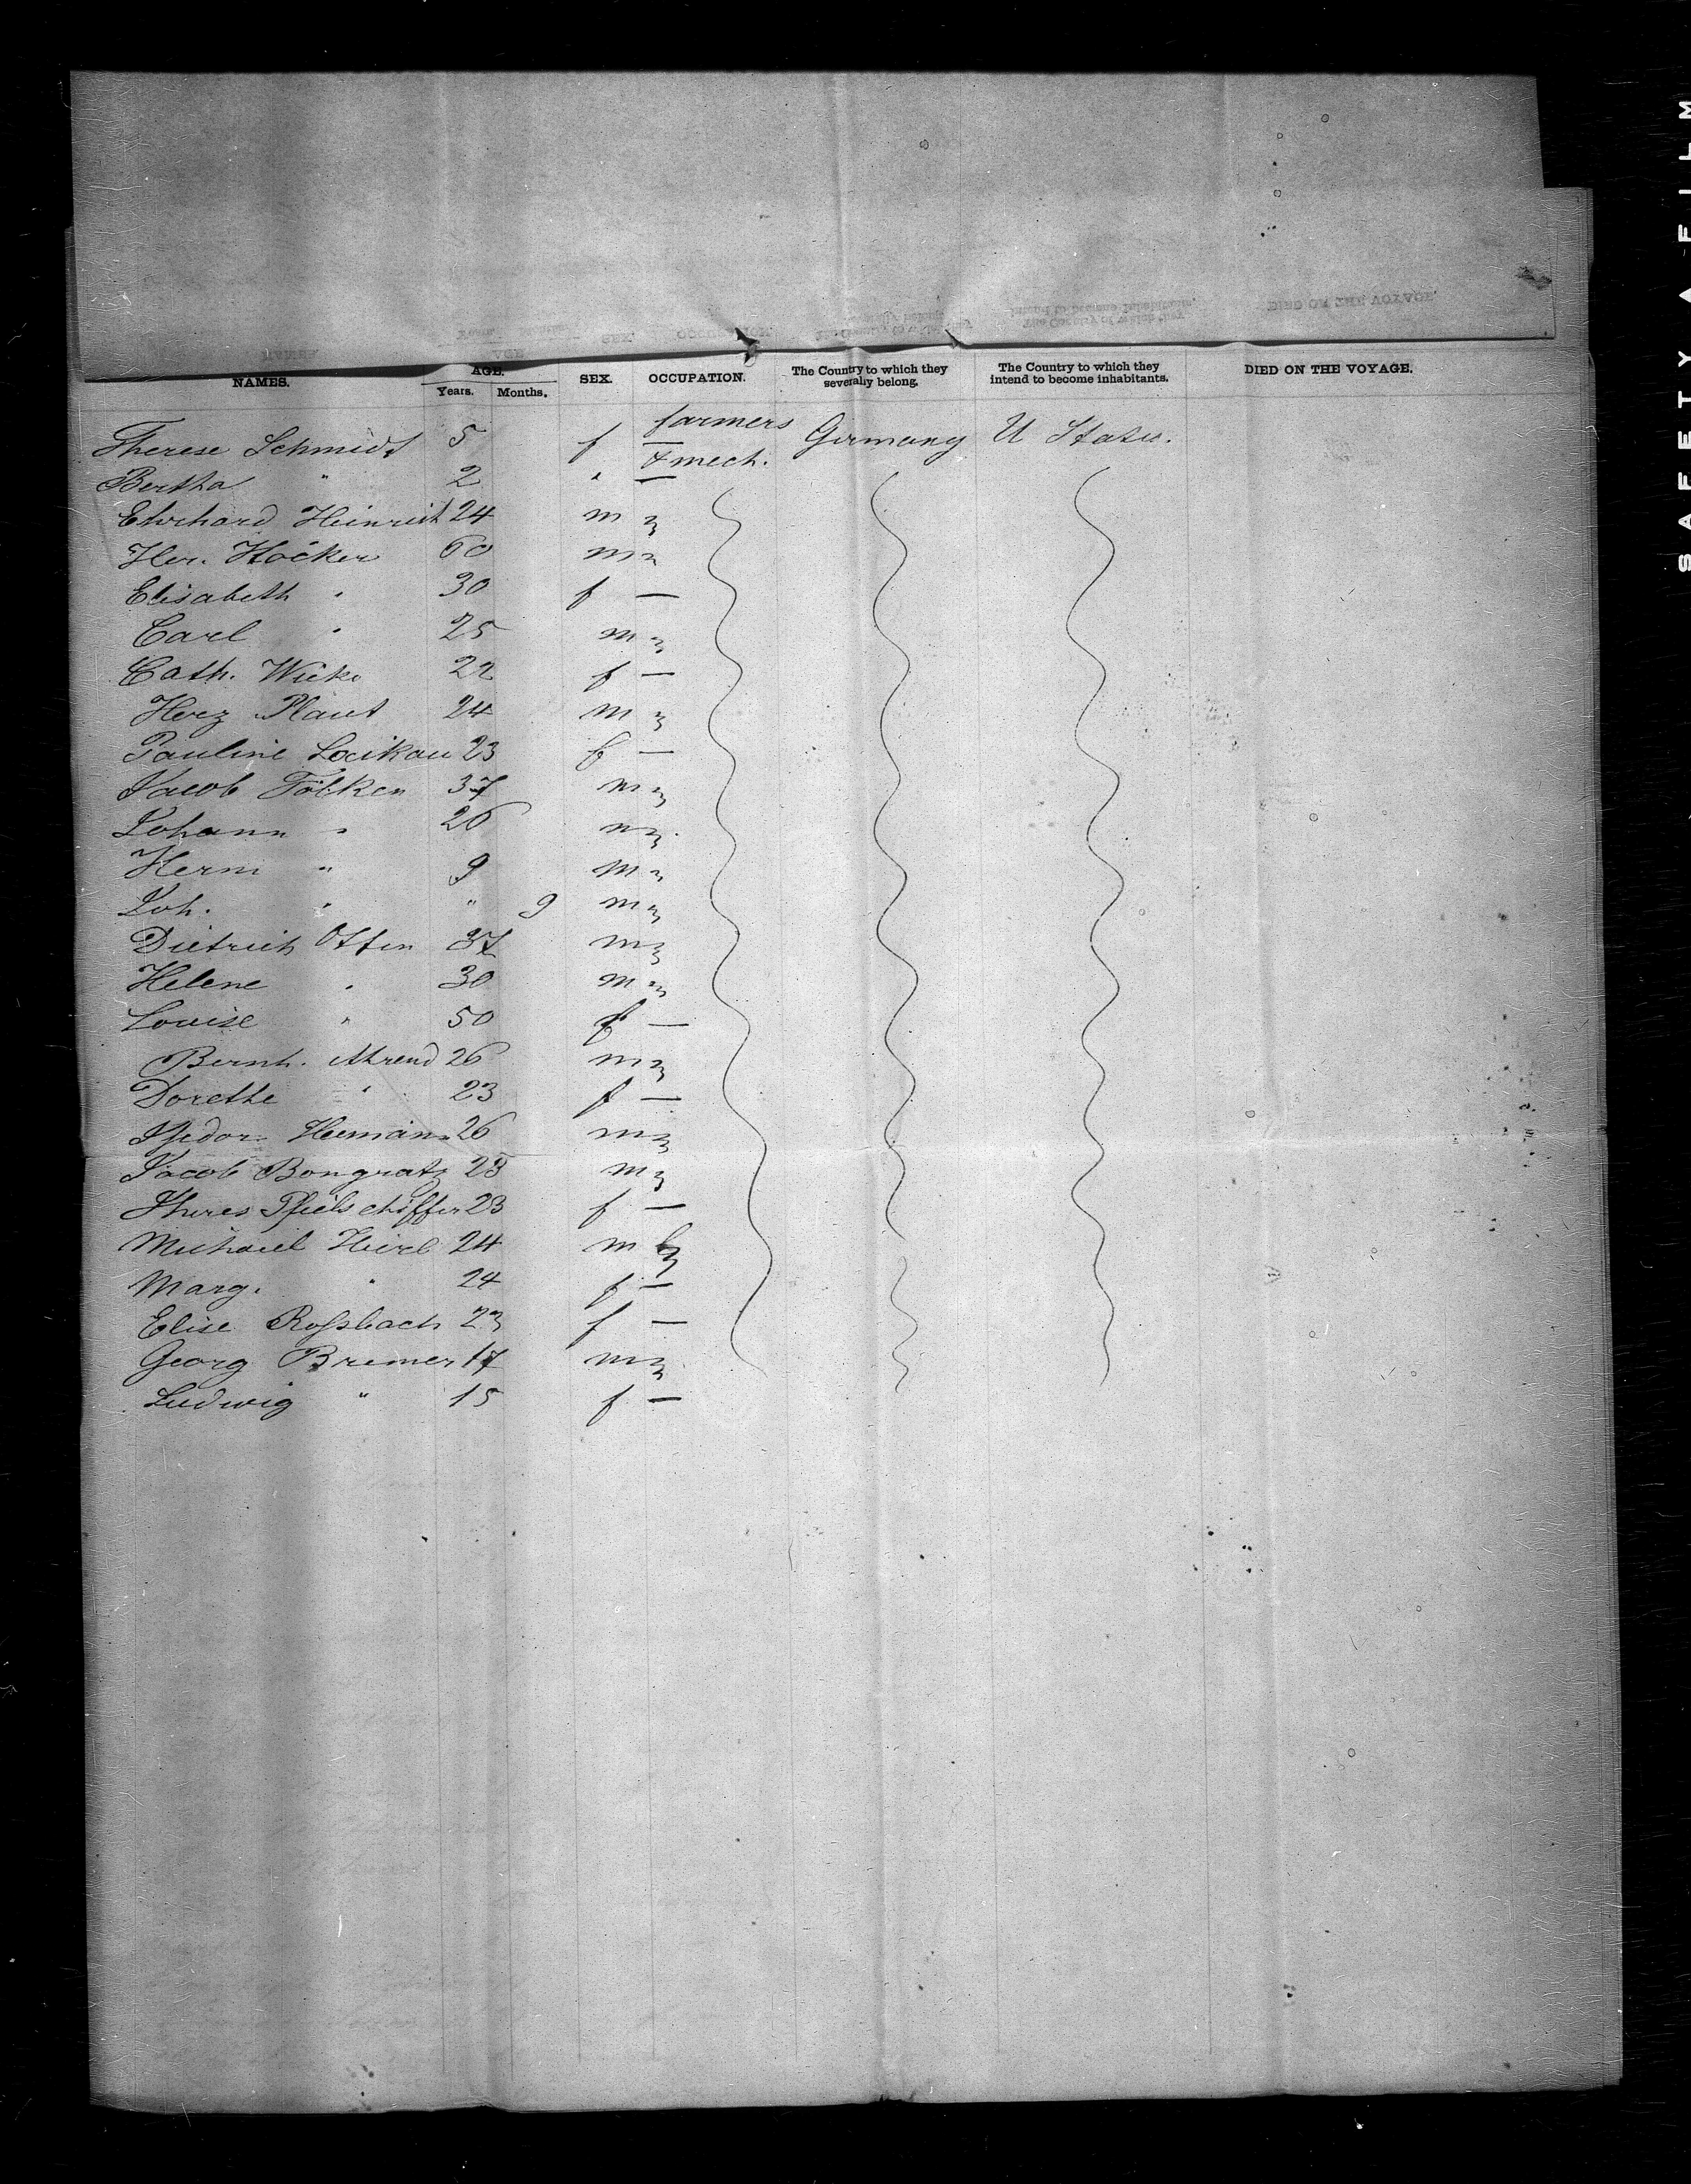 NAMES. AGE. Years. Months. SEX. OCCUPATION. The Country to which they severally belong. The Country to which they intend to become inhabitants. DIED ON THE VOYAGE.
farmers
Therese Schmidt 5 f — Germany U States.
& mech.
Bertha " 2 " —
Ehrhard Heinrich 24 m
Her. Höcker 60 m
Elisabeth " 30 f —
Carl " 25 m
Cath. Wicke 22 f —
Herz Plaut 24 m
Pauline Loeikau 23 f —
Jacob Fölken 37 m
Johann " 26 m
Herm " 9 m
Joh. " " 9 m
Dietrich Otten 37 m
Helene " 30 m
Louise " 50 f —
Bernh. Ahrend 26 m
Dorethe " 23 f —
Isidor Hermann 26 m
Jacob Bongratz 23 m
Theres Pfielschiffer 23 f —
Michael Hierl 24 m
Marg. " 24 f —
Elise Roßbach 23 f —
Georg Bremer 17 m
Ludwig " 15 f —
SAFETY FILM